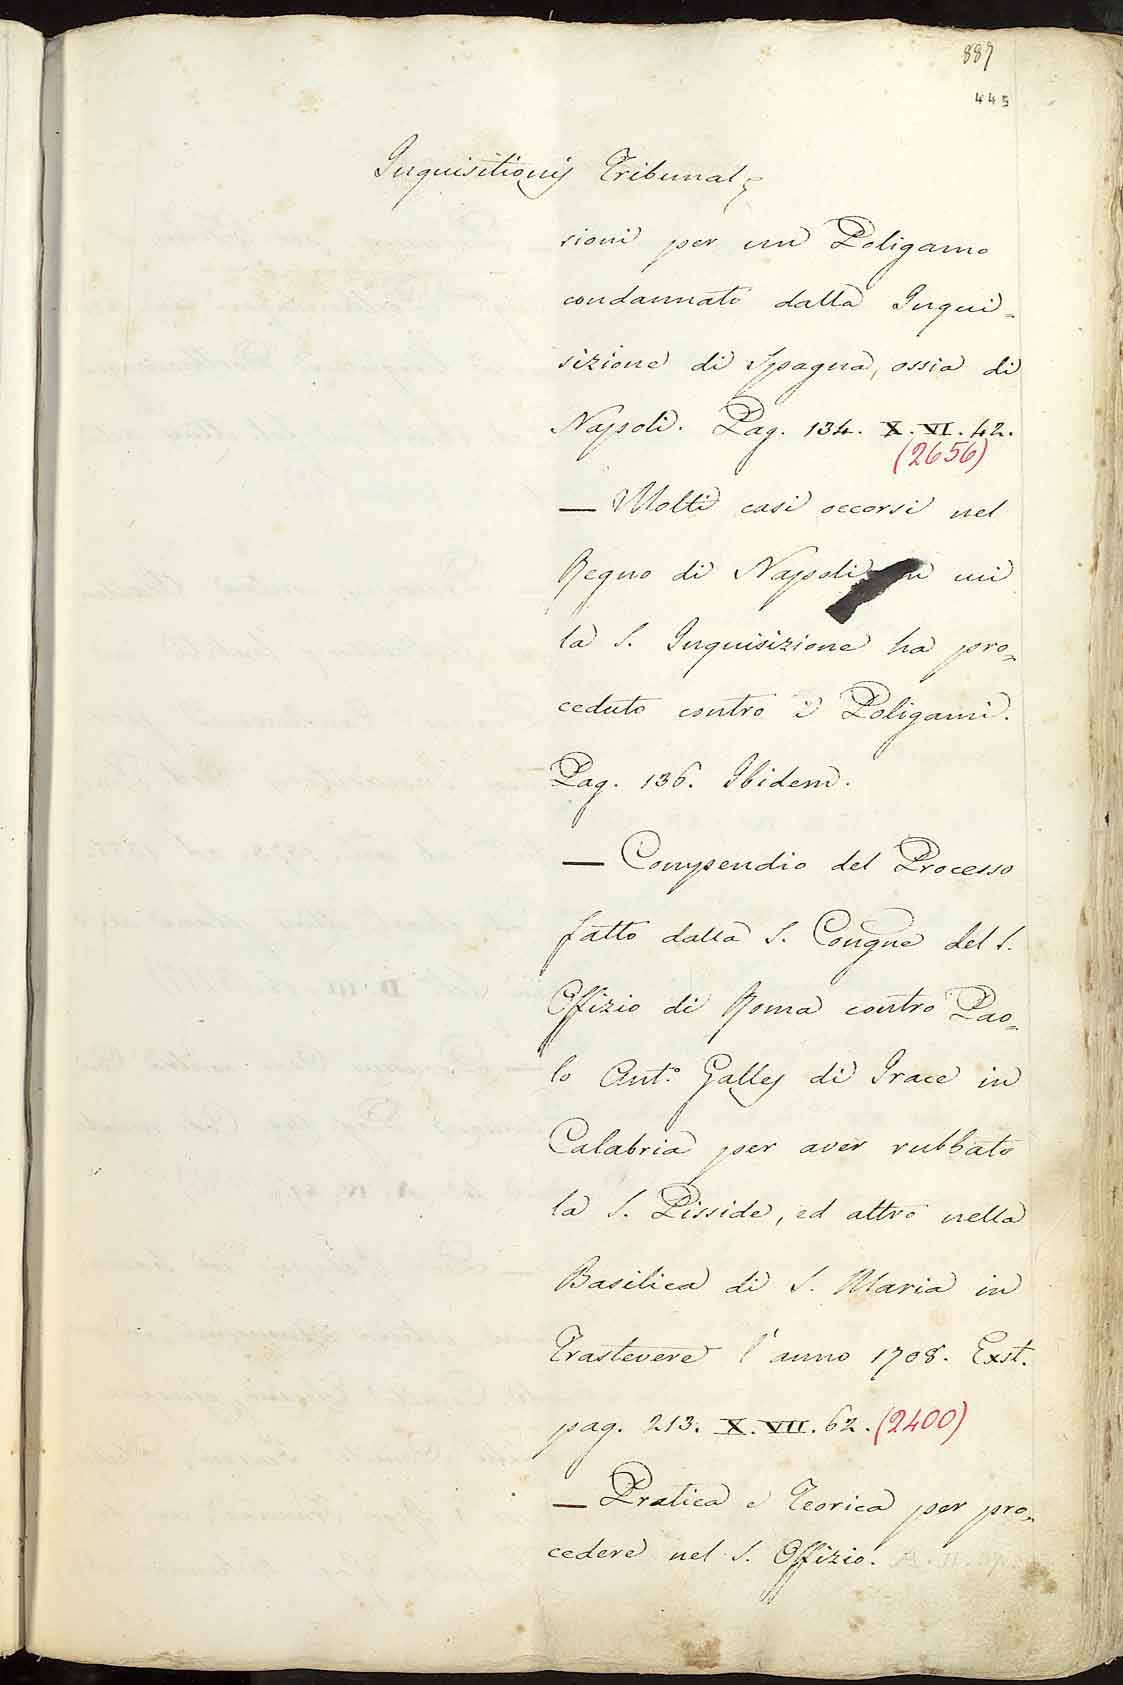 889
445
Inquisitionis Tribunal
sioni per un Poligamo
condannato dalla Inqui-
sizione di Spagna, ossia di
Napoli. Pag. 134. X. VI. 42.
(2656)
— Molti casi occorsi nel
Regno di Napoli in cui
la S. Inquisizione ha pro-
ceduto contro i Poligami.
Pag. 136. Ibidem.
— Compendio del Processo
fatto dalla S. Congne del S.
Offizio di Roma contro Pao-
lo Ant.º Galles di Irace in
Calabria per aver rubbato
la S. Pisside, ed altro nella
Basilica di S. Maria in
Trastevere l'anno 1708. Exst.
pag. 213. X. VII. 62. (2400)
— Pratica e Teorica per pro-
cedere nel S. Offizio.